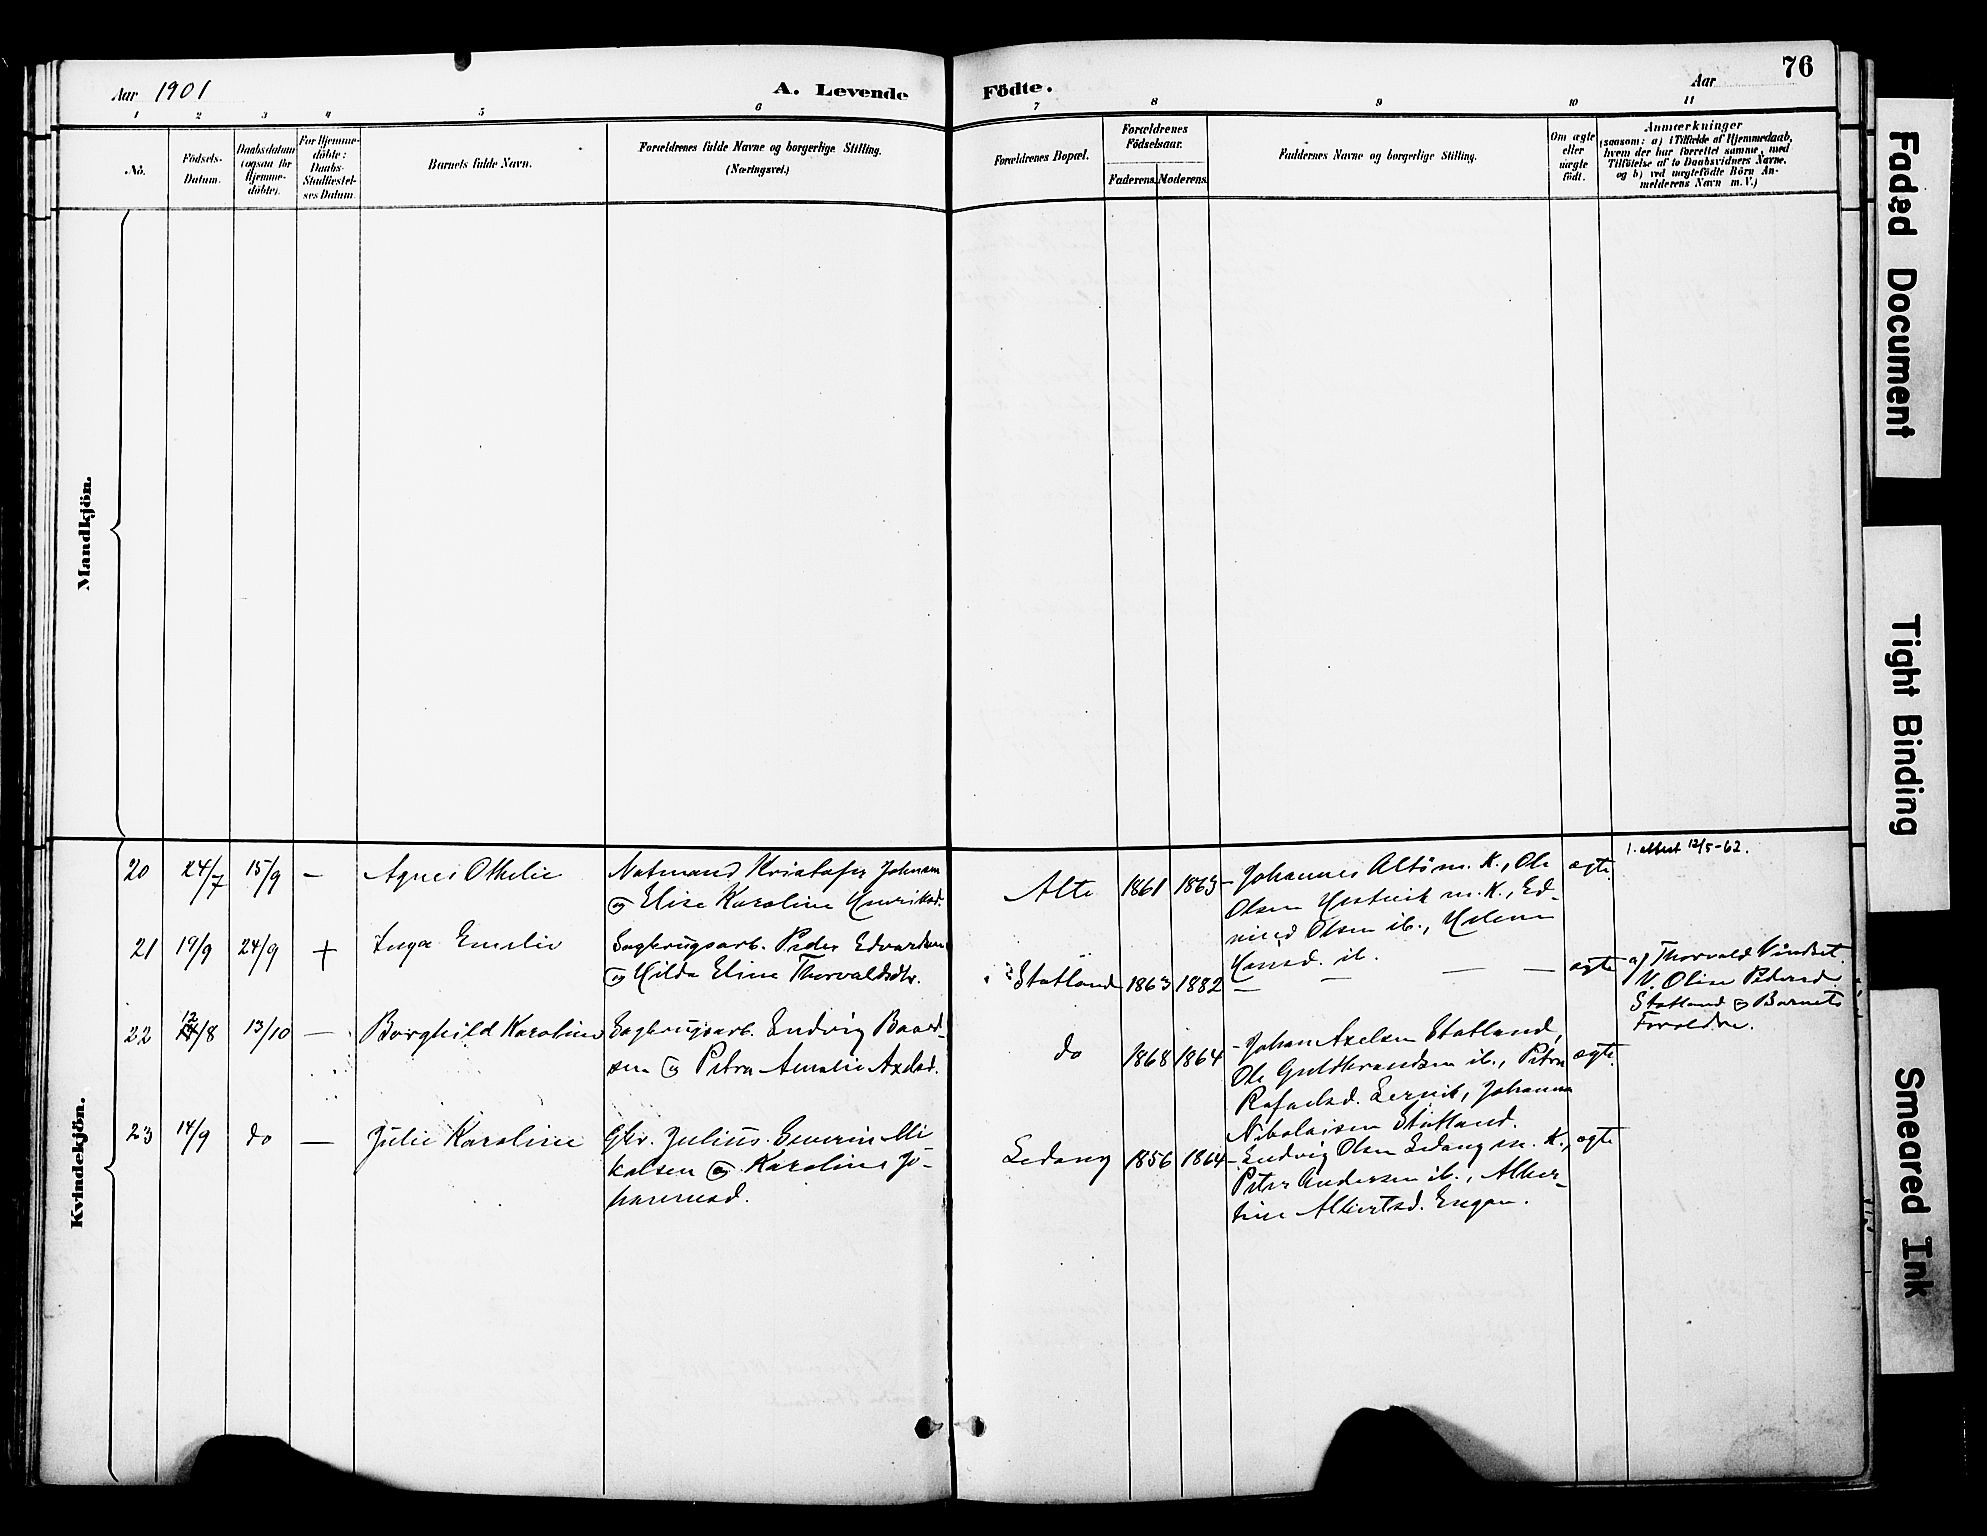 Aar 1901
A. Levende
Födte.
Aar
76
1 2 3 4 5 6 7 8 9 10 11
No.
Födsels-
Datum.
Daabsdatum
(ogsaa for
Hjemme-
döbte).
For Hjemme-
döbte:
Daabs-
Stadfæstel-
ses Datum.
Barnets fulde Navn.
Forældrenes fulde Navne og borgerlige Stilling.
(Næringsvei.)
Forældrenes Bopæl.
Forældrenes
Födselsaar.
Faderens.
Moderens.
Faddernes Navne og borgerlige Stilling.
Om ægte
eller
uægte
födt.
Anmærkninger
(saasom: a) i Tilfælde af Hjemmedaab,
hvem der har forrettet samme, med
Tilföielse af to Daabsvidners Navne,
og b) ved uægtefödte Börn An-
melderens Navn m. V.)
Mandkjön.
Kvindekjön.
20 24/7 15/9 — Agnes Othelie
Notmand Kristofer Johnsen
og Elise Karoline Henriksd.
Alte 1861 1863
Johannes Altö m. K., Ole
Olsen Hestvik m. K., Ed-
vind Olsen ib., Helena
Hansd. ib.
ægte
1. attest 12/5-62.
21 19/9 24/9 + Inga Emelie
Sagbrugsarb. Peder Edvardsen
og Hilda Eline Thorvaldsdtr.
Statland 1863 1882
— — — —
ægte
af Thorvald
V. Oline Pedersd.
Statland og Barnets
Foreldre.
22 12/8 13/10 — Borghild Karoline
Sagbrugsarb. Ludvig Baard-
sen og Petra Amalie Axelsd.
do 1868 1864
Johan Axelsen Statland,
Ole Guldbrandsen ib., Petra
Rafaelsd. Lervik, Johanna
Nikolaisen Statland.
ægte
23 14/9 do — Julie Karoline
Gbr. Julius Severin Mi
kalsen og Karoline Jo-
hannesd.
Sedang 1856 1864
Ludvig Olsen Sedang m. K.,
Peter Andersen ib., Alber-
tine Albertsd. Engan.
ægte
Faded Document
Tight Binding
Smeared Ink